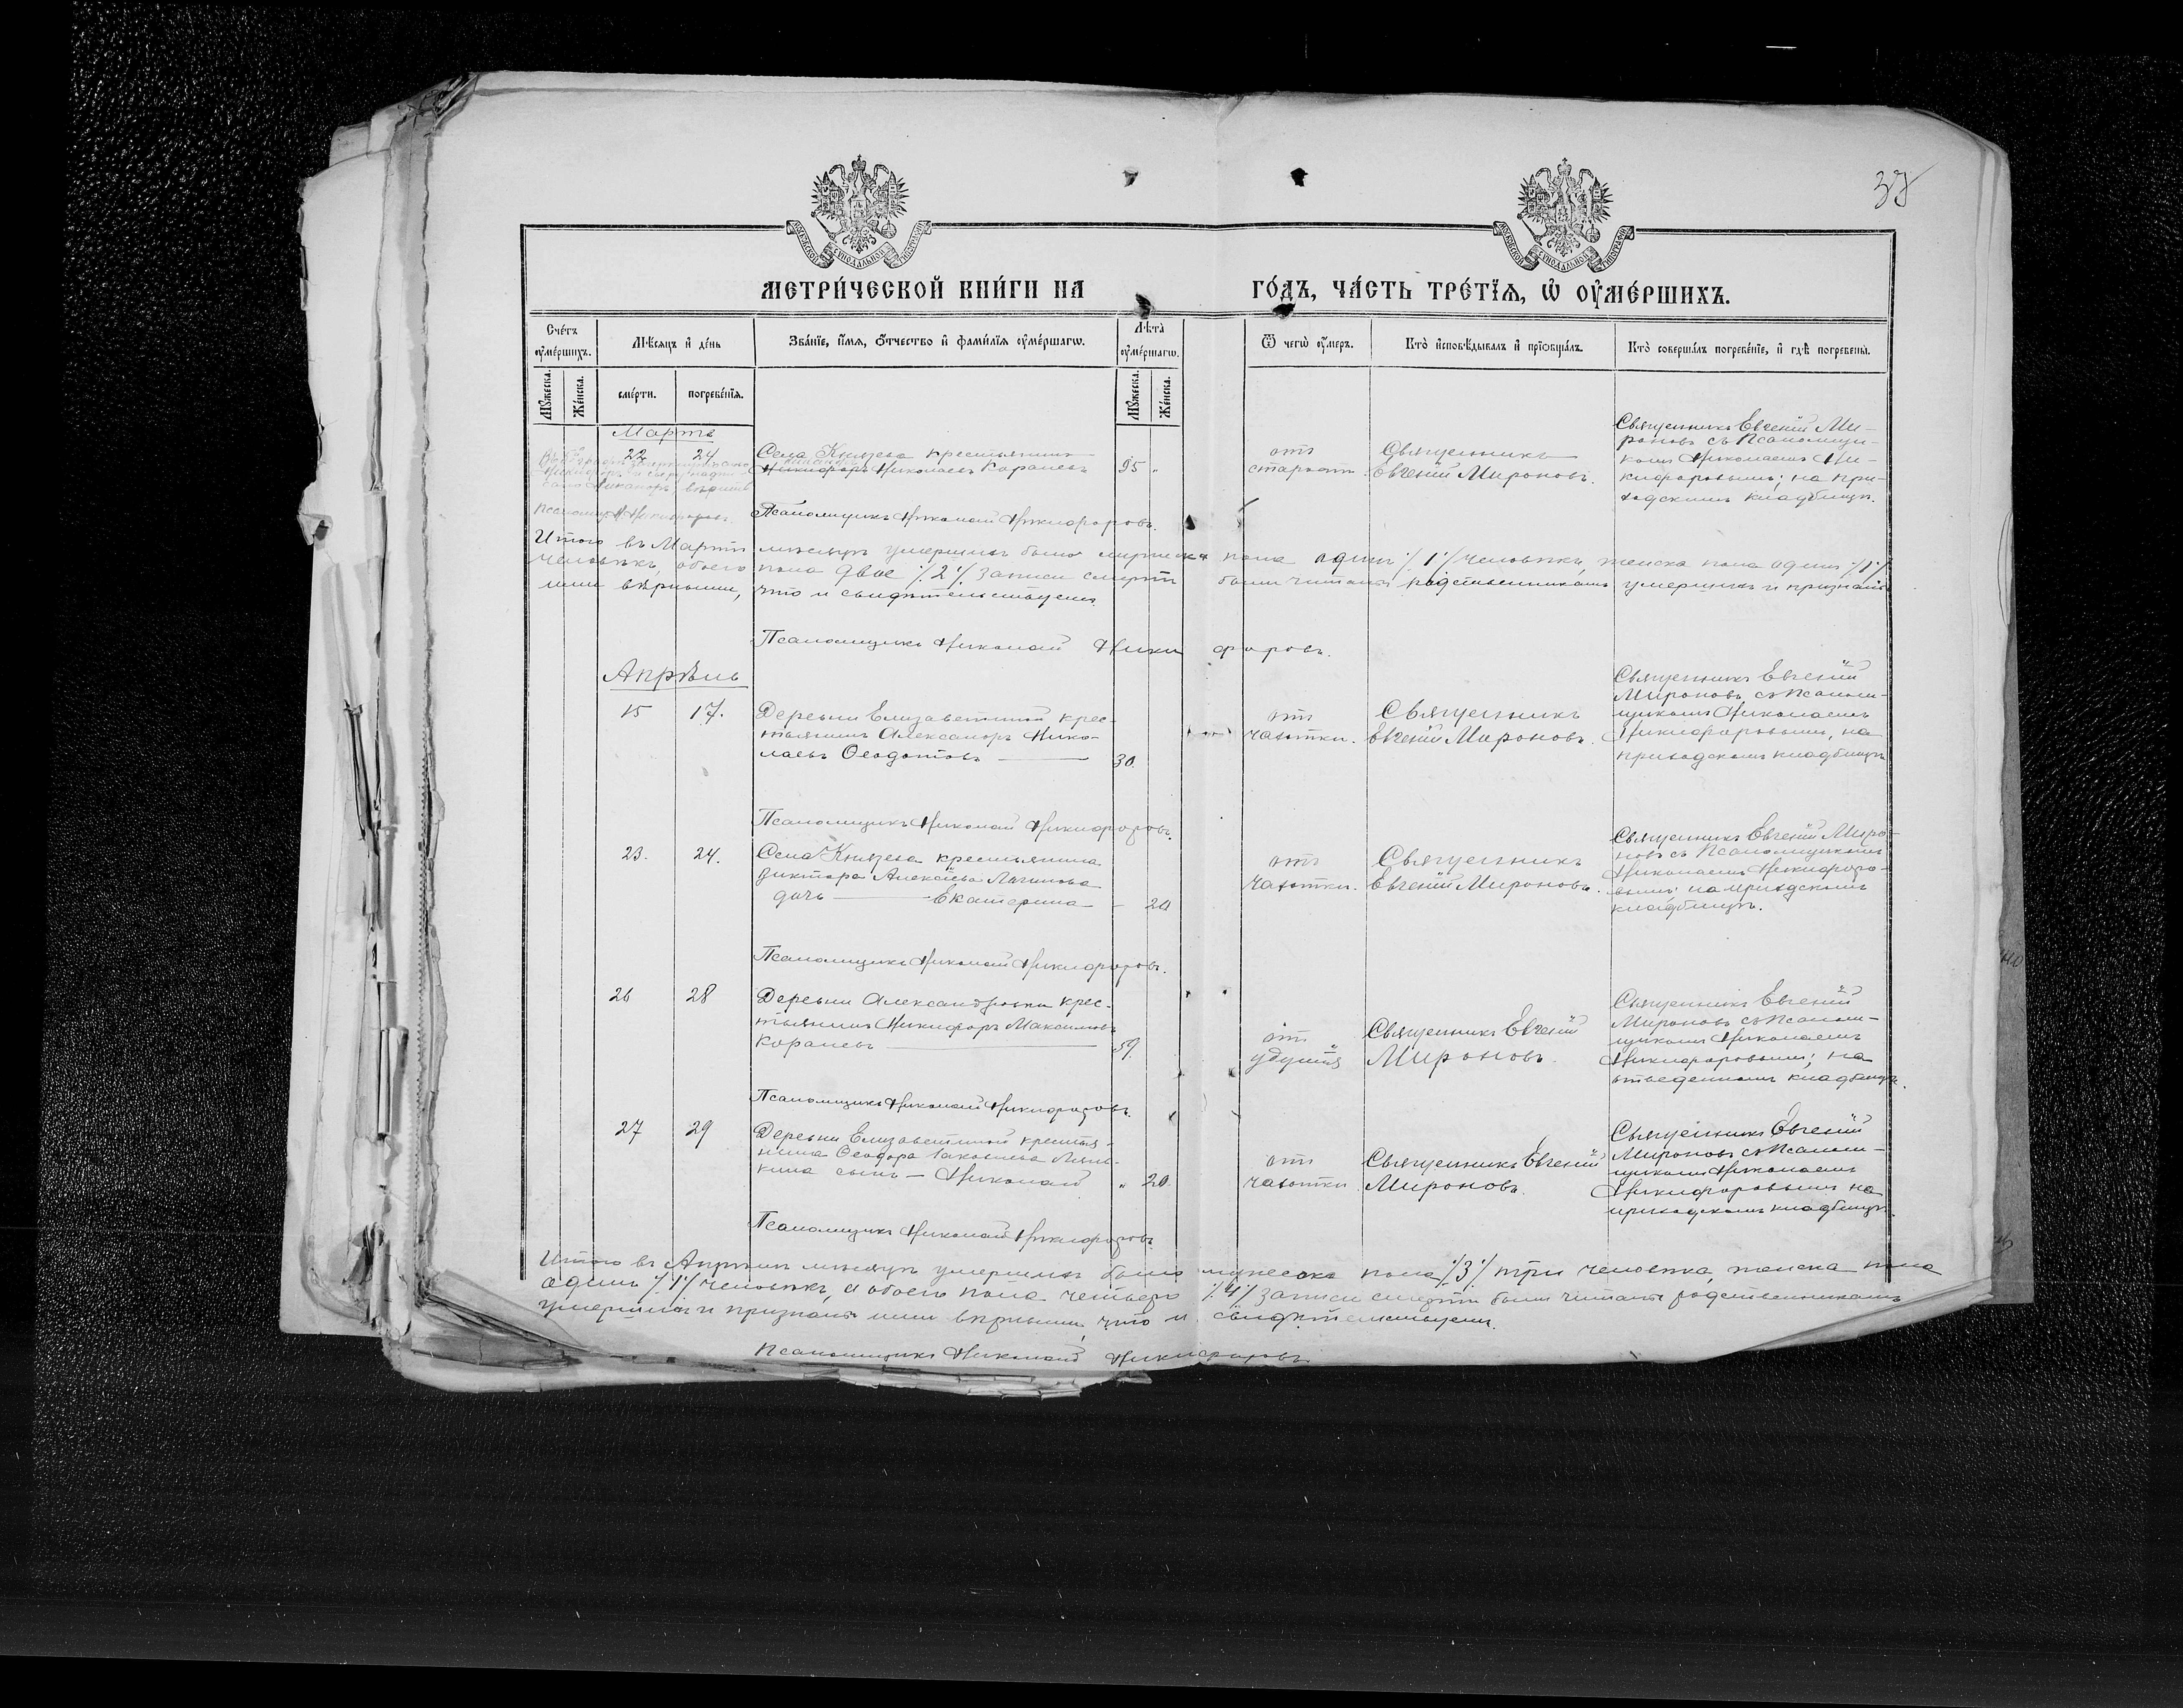 37
МОСКОВСКОЙ СѴНОДАЛЬНОЙ ТИПОГРАФІИ
МОСКОВСКОЙ СѴНОДАЛЬНОЙ ТИПОГРАФІИ
МЕТРИ́ЧЕСКОЙ КНИ́ГИ НА ГО́ДЪ, ЧА́СТЬ ТРЕ́ТІѦ, Ѡ ОУ҆МЕ́РШИХЪ.
Сче́тъ оу҆ме́ршихъ.
Мѣ́сяцъ и҆ де́нь
Зва́нїе, и҆́мя, ѻ҆́тчество и҆ фами́лїя оу҆ме́ршагѡ.
Лѣ́та оу҆ме́ршагѡ.
Ѿ чегѡ̀ оу҆́меръ.
Кто̀ и҆сповѣ́дывалъ и҆ прїѡбща́лъ.
Кто̀ соверша́лъ погребе́нїе, и҆ гдѣ̀ погребены̀.
Мꙋ́жеска.
Же́нска.
сме́рти.
погребе́нїя.
Мꙋ́жеска.
Же́нска.
Мартъ
22
24
Села Князева крестьянинъ
Никифоръ Николаевъ Каралевъ
95 "
отъ
старости
Священникъ
Евгеній Мироновъ.
Священникъ Евгеній Ми-
роновъ съ Псаломщи-
комъ Николаемъ Ни-
кифоровымъ; на при-
ходскомъ кладбищѣ.
Псаломщикъ Николай Никифоровъ.
Итого въ Мартѣ мѣсяцѣ умершихъ было мужеска пола одинъ /1/ человѣкъ, женска пола одинъ /1/
человѣкъ, обоего пола двое /2/. Записи смерти были читаны родственникамъ умершихъ и признаны
ими вѣрными, что и свидѣтельствуемъ.
Псаломщикъ Николай Никифоровъ.
Апрѣль
15
17.
Деревни Елизаветиной крес-
тьянинъ Александръ Нико-
лаевъ Ѳеодотовъ
30.
отъ
чахотки.
Священникъ
Евгеній Мироновъ.
Священникъ Евгеній
Мироновъ съ Псалом-
щикомъ Николаемъ
Никифоровымъ, на
приходскомъ кладбищѣ
Псаломщикъ Николай Никифоровъ.
23.
24.
Села Князева крестьянина
Виктора Алексѣева
дочь — Екатерина
- 20
отъ
чахотки.
Священникъ
Евгеній Мироновъ.
Священникъ Евгеній Миро-
новъ съ Псаломщикомъ
Николаемъ Никифоро-
вымъ; на приходскомъ
кладбищѣ.
Псаломщикъ Николай Никифоровъ.
26
28
Деревни Александровки крес-
тьянинъ Никифоръ Максимовъ
Каралевъ
59.
отъ
удушья
Священникъ Евгеній
Мироновъ.
Священникъ Евгеній
Мироновъ съ Псалом-
щикомъ Николаемъ
Никифоровымъ; на
отведенномъ кладбищѣ.
Псаломщикъ Николай Никифоровъ.
27
29
Деревни Елизаветиной крестья-
нина Ѳеодора Іаковлева
сынъ — Николай
" 20.
отъ
чахотки.
Священникъ Евгеній
Мироновъ.
Священникъ Евгеній
Мироновъ съ Псалом-
щикомъ Николаемъ
Никифоровымъ на
приходскомъ кладбищѣ.
Псаломщикъ Николай Никифоровъ.
Итого въ Апрѣлѣ мѣсяцѣ умершихъ было мужеска пола /3/ три человѣка, женска пола
одинъ /1/ человѣкъ, а обоего пола четверо /4/ Записи смерти были читаны родственникамъ
умершихъ и признаны ими вѣрными, что и свидѣтельствуемъ.
Псаломщикъ Николай Никифоровъ